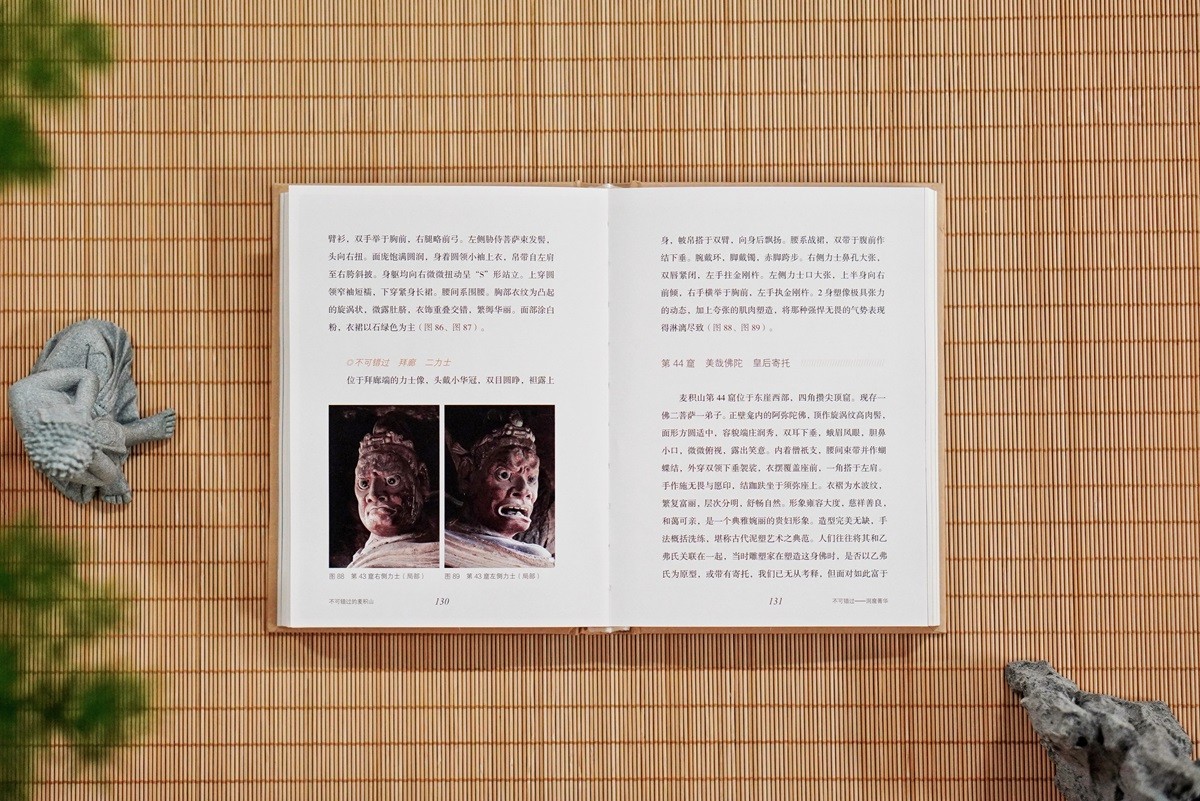 臂衫，双手举于胸前，右腿略前弓。左侧胁侍菩萨束发髻，
头向右扭。面庞饱满圆润，身着圆领小袖上衣，帛带自左肩
至右胯斜披。身躯均向右微微扭动呈“S”形站立。上穿圆
领窄袖短襦，下穿紧身长裙。腰间系围腰。胸部衣纹为凸起
的旋涡状，微露肚脐，衣饰重叠交错，繁缛华丽。面部涂白
粉，衣裙以石绿色为主（图 86、图 87）。
◎不可错过 拜廊 二力士
位于拜廊端的力士像，头戴小华冠，双目圆睁，袒露上
图 88 第 43 窟右侧力士（局部）
图 89 第 43 窟左侧力士（局部）
不可错过的麦积山
130
身，帔帛搭于双臂，向身后飘扬。腰系战裙，双带于腹前作
结下垂。腕戴环，脚戴镯，赤脚跨步。右侧力士鼻孔大张，
双唇紧闭，左手拄金刚杵。左侧力士口大张，上半身向右
前倾，右手横举于胸前，左手执金刚杵。2 身塑像极具张力
的动态，加上夸张的肌肉塑造，将那种强悍无畏的气势表现
得淋漓尽致（图 88、图 89）。
第 44 窟 美哉佛陀 皇后寄托
麦积山第 44 窟位于东崖西部，四角攒尖顶窟。现存一
佛二菩萨一弟子。正壁龛内的阿弥陀佛，顶作旋涡纹高肉髻，
面形方圆适中，容貌端庄润秀，双耳下垂，蛾眉凤眼，胆鼻
小口，微微俯视，露出笑意。内着僧祇支，腰间束带并作蝴
蝶结，外穿双领下垂袈裟，衣摆覆盖座前，一角搭于左肩。
手作施无畏与愿印，结跏趺坐于须弥座上。衣褶为水波纹，
繁复富丽，层次分明，舒畅自然。形象雍容大度，慈祥善良，
和蔼可亲，是一个典雅婉丽的贵妇形象。造型完美无缺，手
法概括洗练，堪称古代泥塑艺术之典范。人们往往将其和乙
弗氏关联在一起，当时雕塑家在塑造这身佛时，是否以乙弗
氏为原型，或带有寄托，我们已无从考释，但面对如此富于
131
不可错过——洞窟菁华